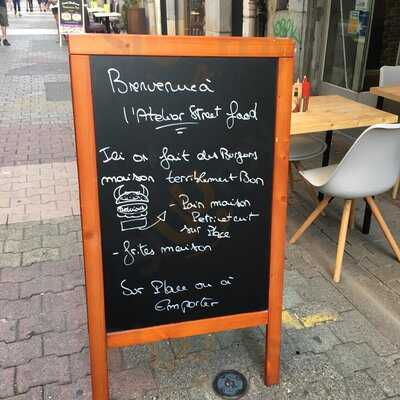 Bienvenu à
l'Atelier Street food
Ici on fait des Burgers
maison terriblement Bon
- Pain maison
Petri et cuit
sur Place
- frites maison
Sur Place ou à
Emporter